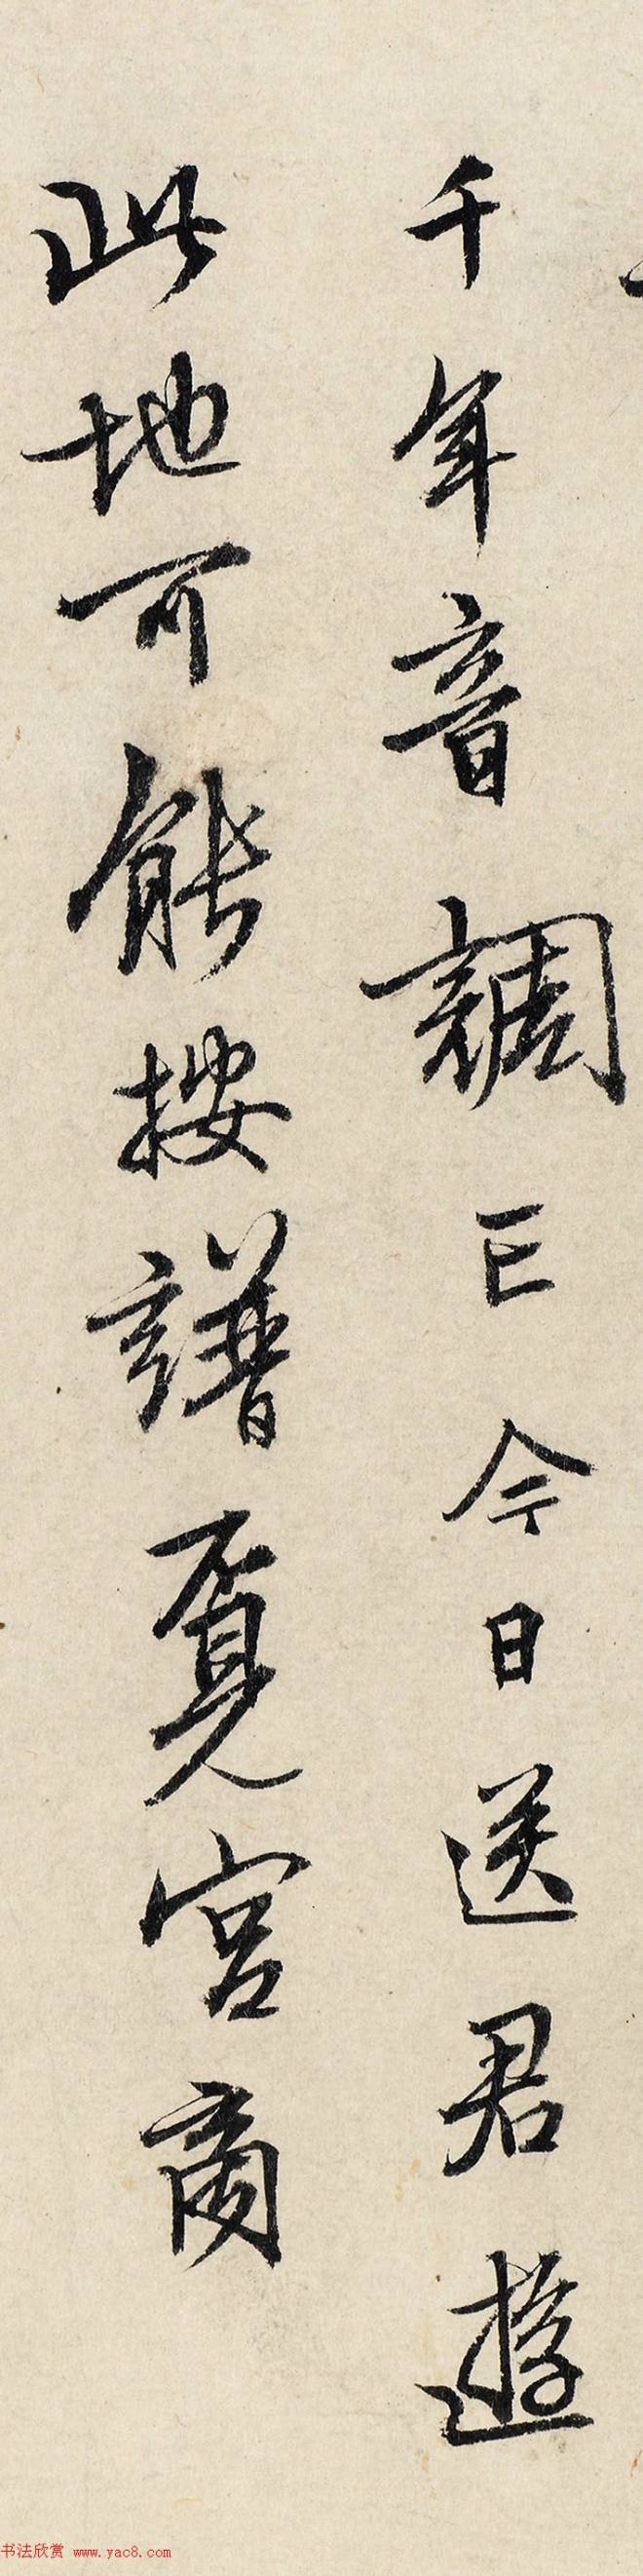 千年音調亡今日送君遊
此地可能按譜覔宮商
书法欣赏 www.yac8.com